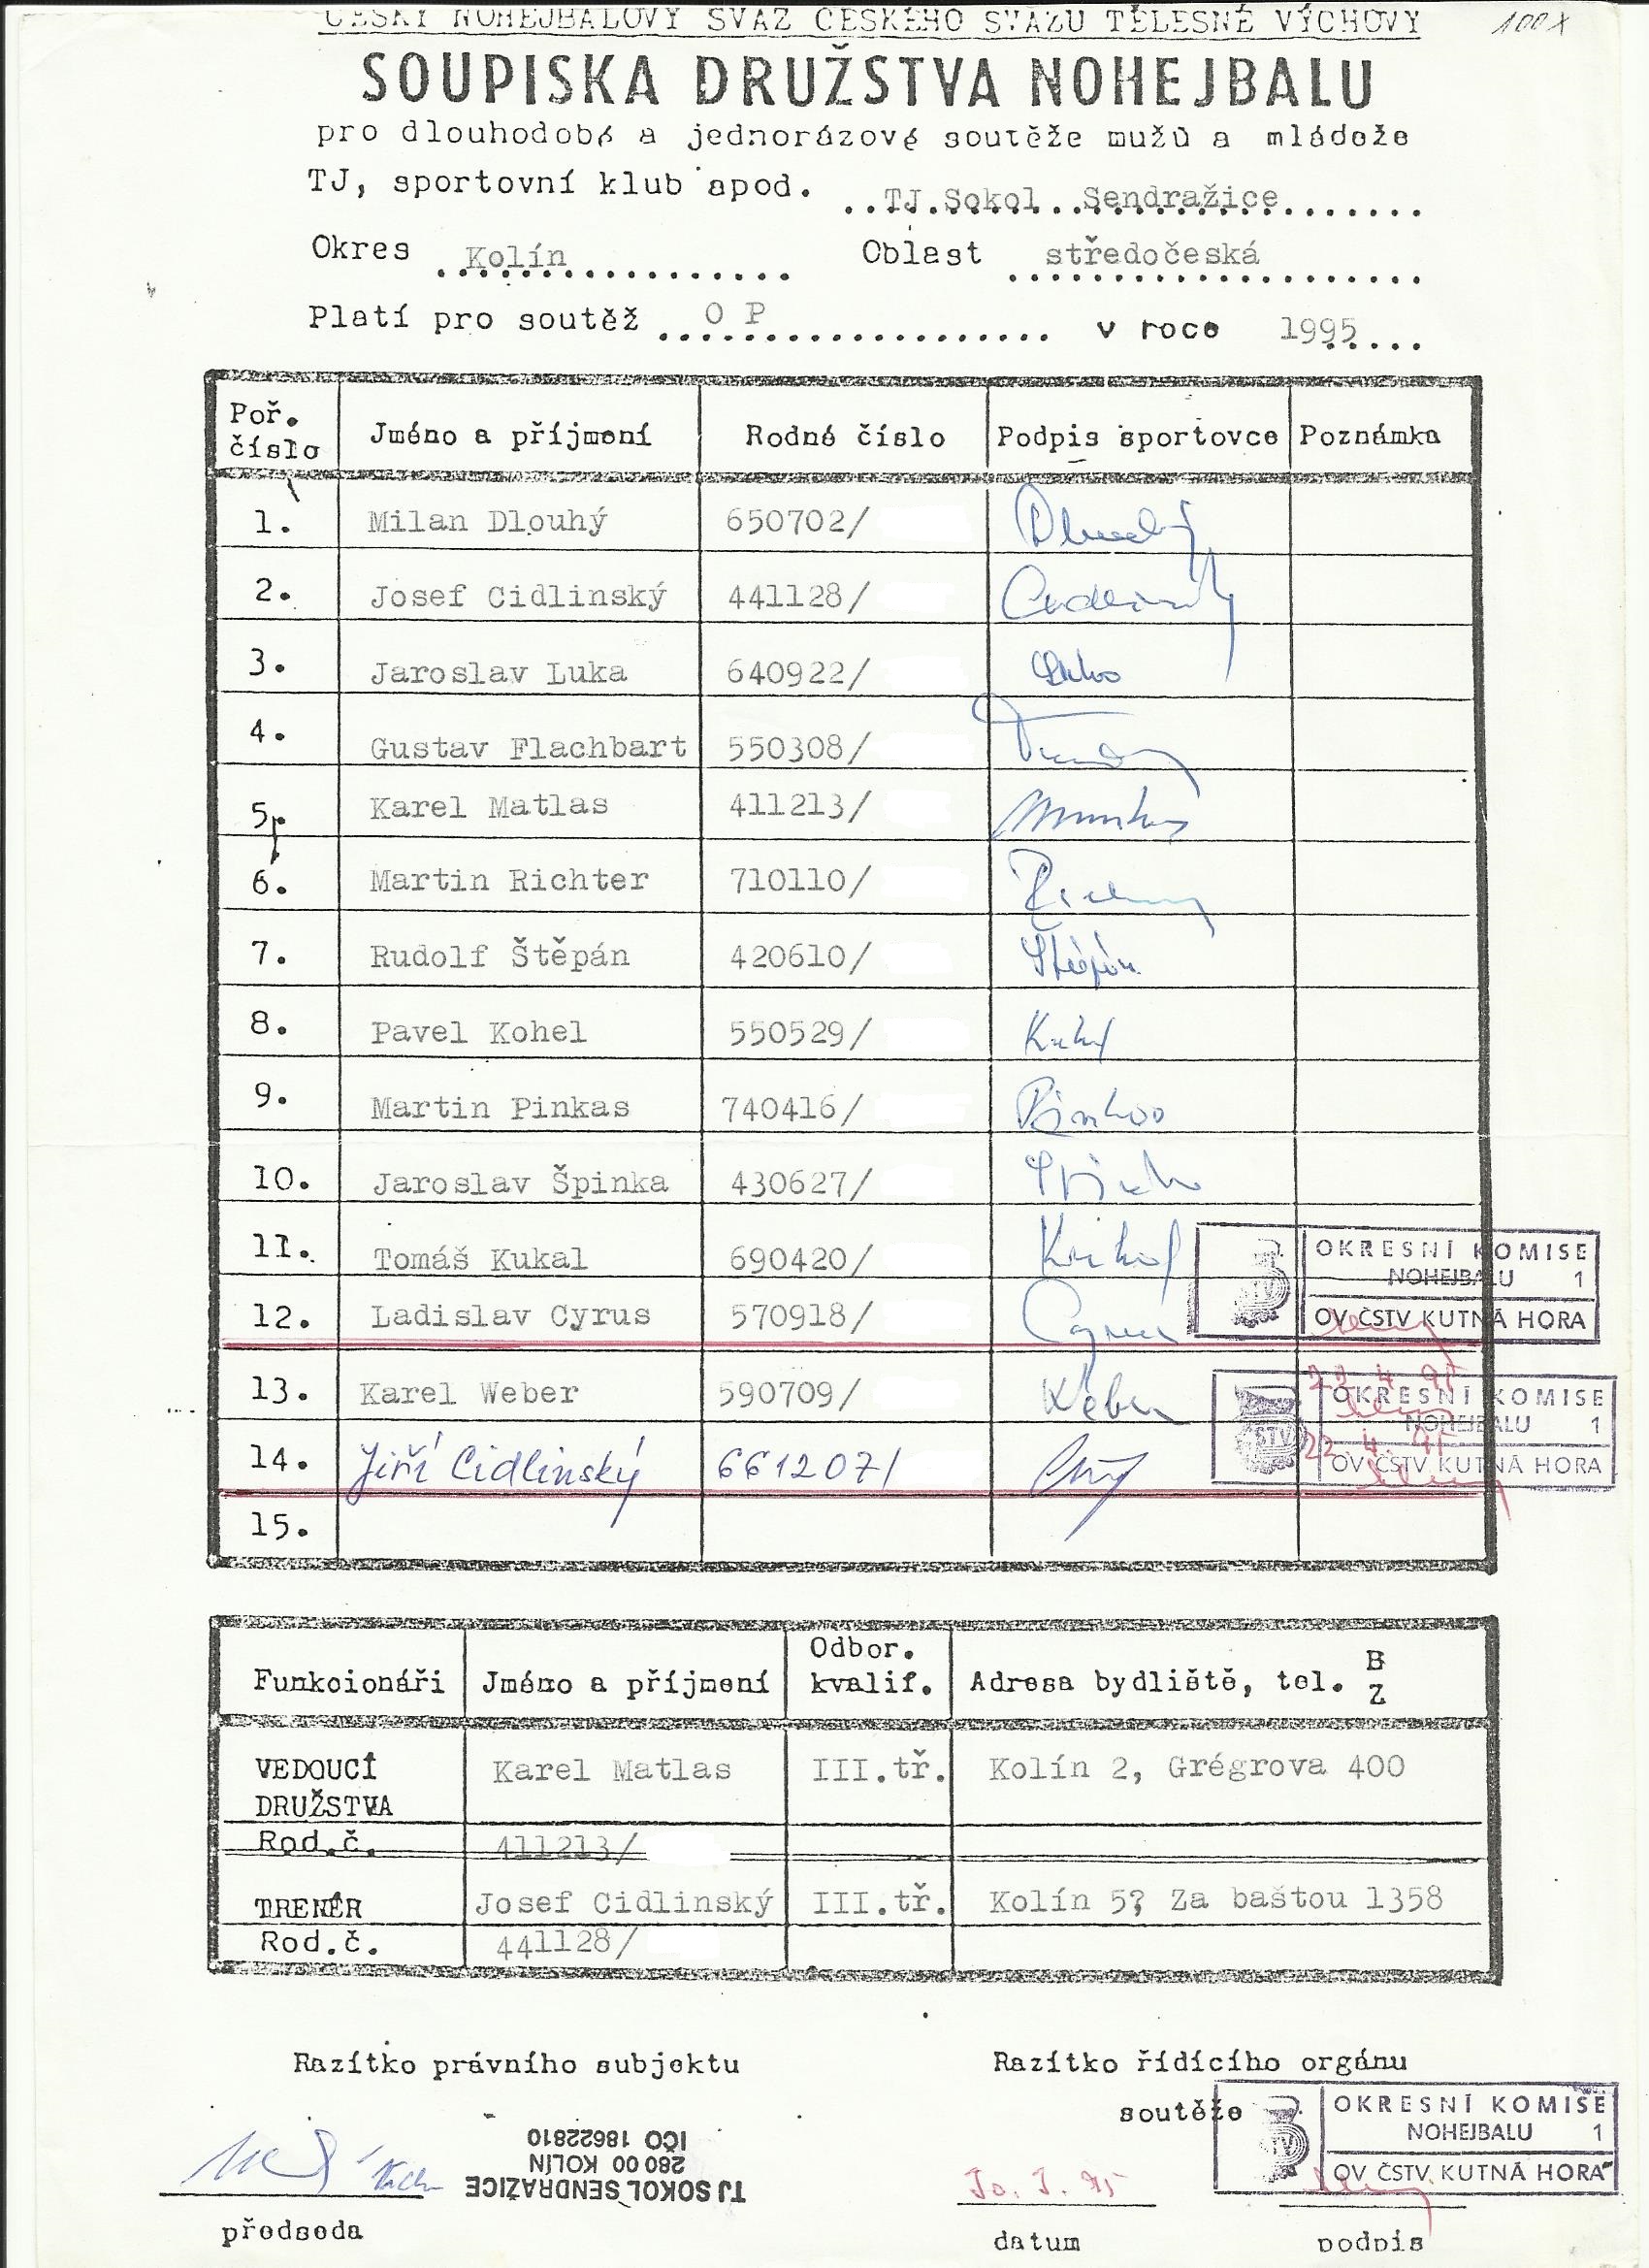 ČESKÝ NOHEJBALOVÝ SVAZ ČESKÉHO SVAZU TĚLESNÉ VÝCHOVY
100x
SOUPISKA DRUŽSTVA NOHEJBALU
pro dlouhodobé a jednorázové soutěže mužů a mládeže
TJ, sportovní klub apod. TJ.Sokol Sendražice
Okres Kolín Oblast středočeská
Platí pro soutěž O P v roce 1995
Poř. číslo Jméno a příjmení Rodné číslo Podpis sportovce Poznámka
1. Milan Dlouhý 650702/ Dlouhý
2. Josef Cidlinský 441128/ Cidlinský
3. Jaroslav Luka 640922/
4. Gustav Flachbart 550308/
5. Karel Matlas 411213/
6. Martin Richter 710110/
7. Rudolf Štěpán 420610/ Štěpán
8. Pavel Kohel 550529/
9. Martin Pinkas 740416/ Pinkas
10. Jaroslav Špinka 430627/ Špinka
11. Tomáš Kukal 690420/ Kukal
OKRESNÍ KOMISE
NOHEJBALU 1
OV ČSTV KUTNÁ HORA
12. Ladislav Cyrus 570918/ Cyrus
13. Karel Weber 590709/ Weber
22. 4. 95
OKRESNÍ KOMISE
NOHEJBALU 1
22. 4. 95
OV ČSTV KUTNÁ HORA
14. Jiří Cidlinský 661207/
15.
Funkcionáři Jméno a příjmení Odbor. kvalif. Adresa bydliště, tel. B Z
VEDOUCÍ DRUŽSTVA Karel Matlas III.tř. Kolín 2, Grégrova 400
Rod.č. 411213/
TRENÉR Josef Cidlinský III.tř. Kolín 5, Za baštou 1358
Rod.č. 441128/
Razítko právního subjektu
Razítko řídícího orgánu
soutěže
OKRESNÍ KOMISE
NOHEJBALU 1
OV ČSTV KUTNÁ HORA
TJ SOKOL SENDRAŽICE
280 00 KOLÍN
IČO 18622810
předseda
datum
podpis